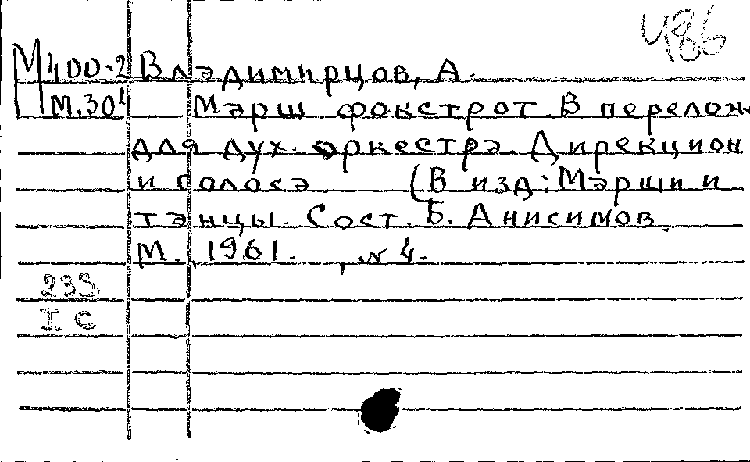 486
М400-2 Владимирцов, А.
М.304 Марш фокстрот. В перелож.
для дух. оркестра. Дирекцион
и голоса. (В изд: Марши и
танцы. Сост. Б. Анисимов.
М., 1961. , № 4.
233
I C